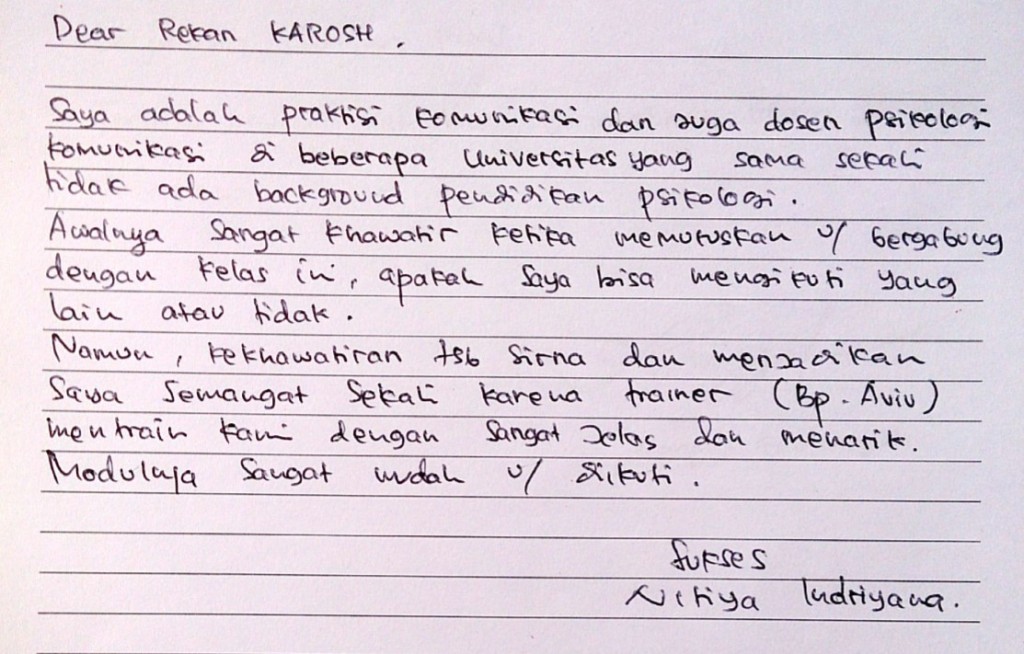 Dear Rekan KAROSH.
Saya adalah praktisi komunikasi dan juga dosen psikologi
komunikasi di beberapa Universitas yang sama sekali
tidak ada background pendidikan psikologi.
Awalnya sangat khawatir ketika memutuskan u/ bergabung
dengan kelas ini, apakah saya bisa mengikuti yang
lain atau tidak.
Namun, kekhawatiran tsb sirna dan menjadikan
saya semangat sekali karena trainer (Bp. Aviv)
mentrain kami dengan sangat jelas dan menarik.
Modulnya sangat mudah u/ diikuti.
Sukses
Indriyana.